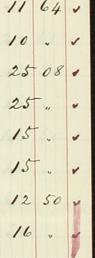 11 64 ✓
10 " ✓
25 08 ✓
25 " ✓
15 " ✓
15 " ✓
12 50 ✓
16 " ✓